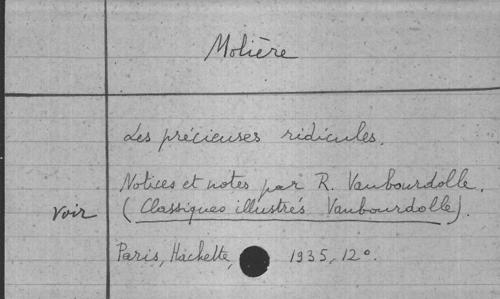 Molière
Les précieuses ridicules.
Notices et notes par R. Vaubourdolle.
voir (Classiques illustrés Vaubourdolle).
Paris, Hachette, 1935, 12°.